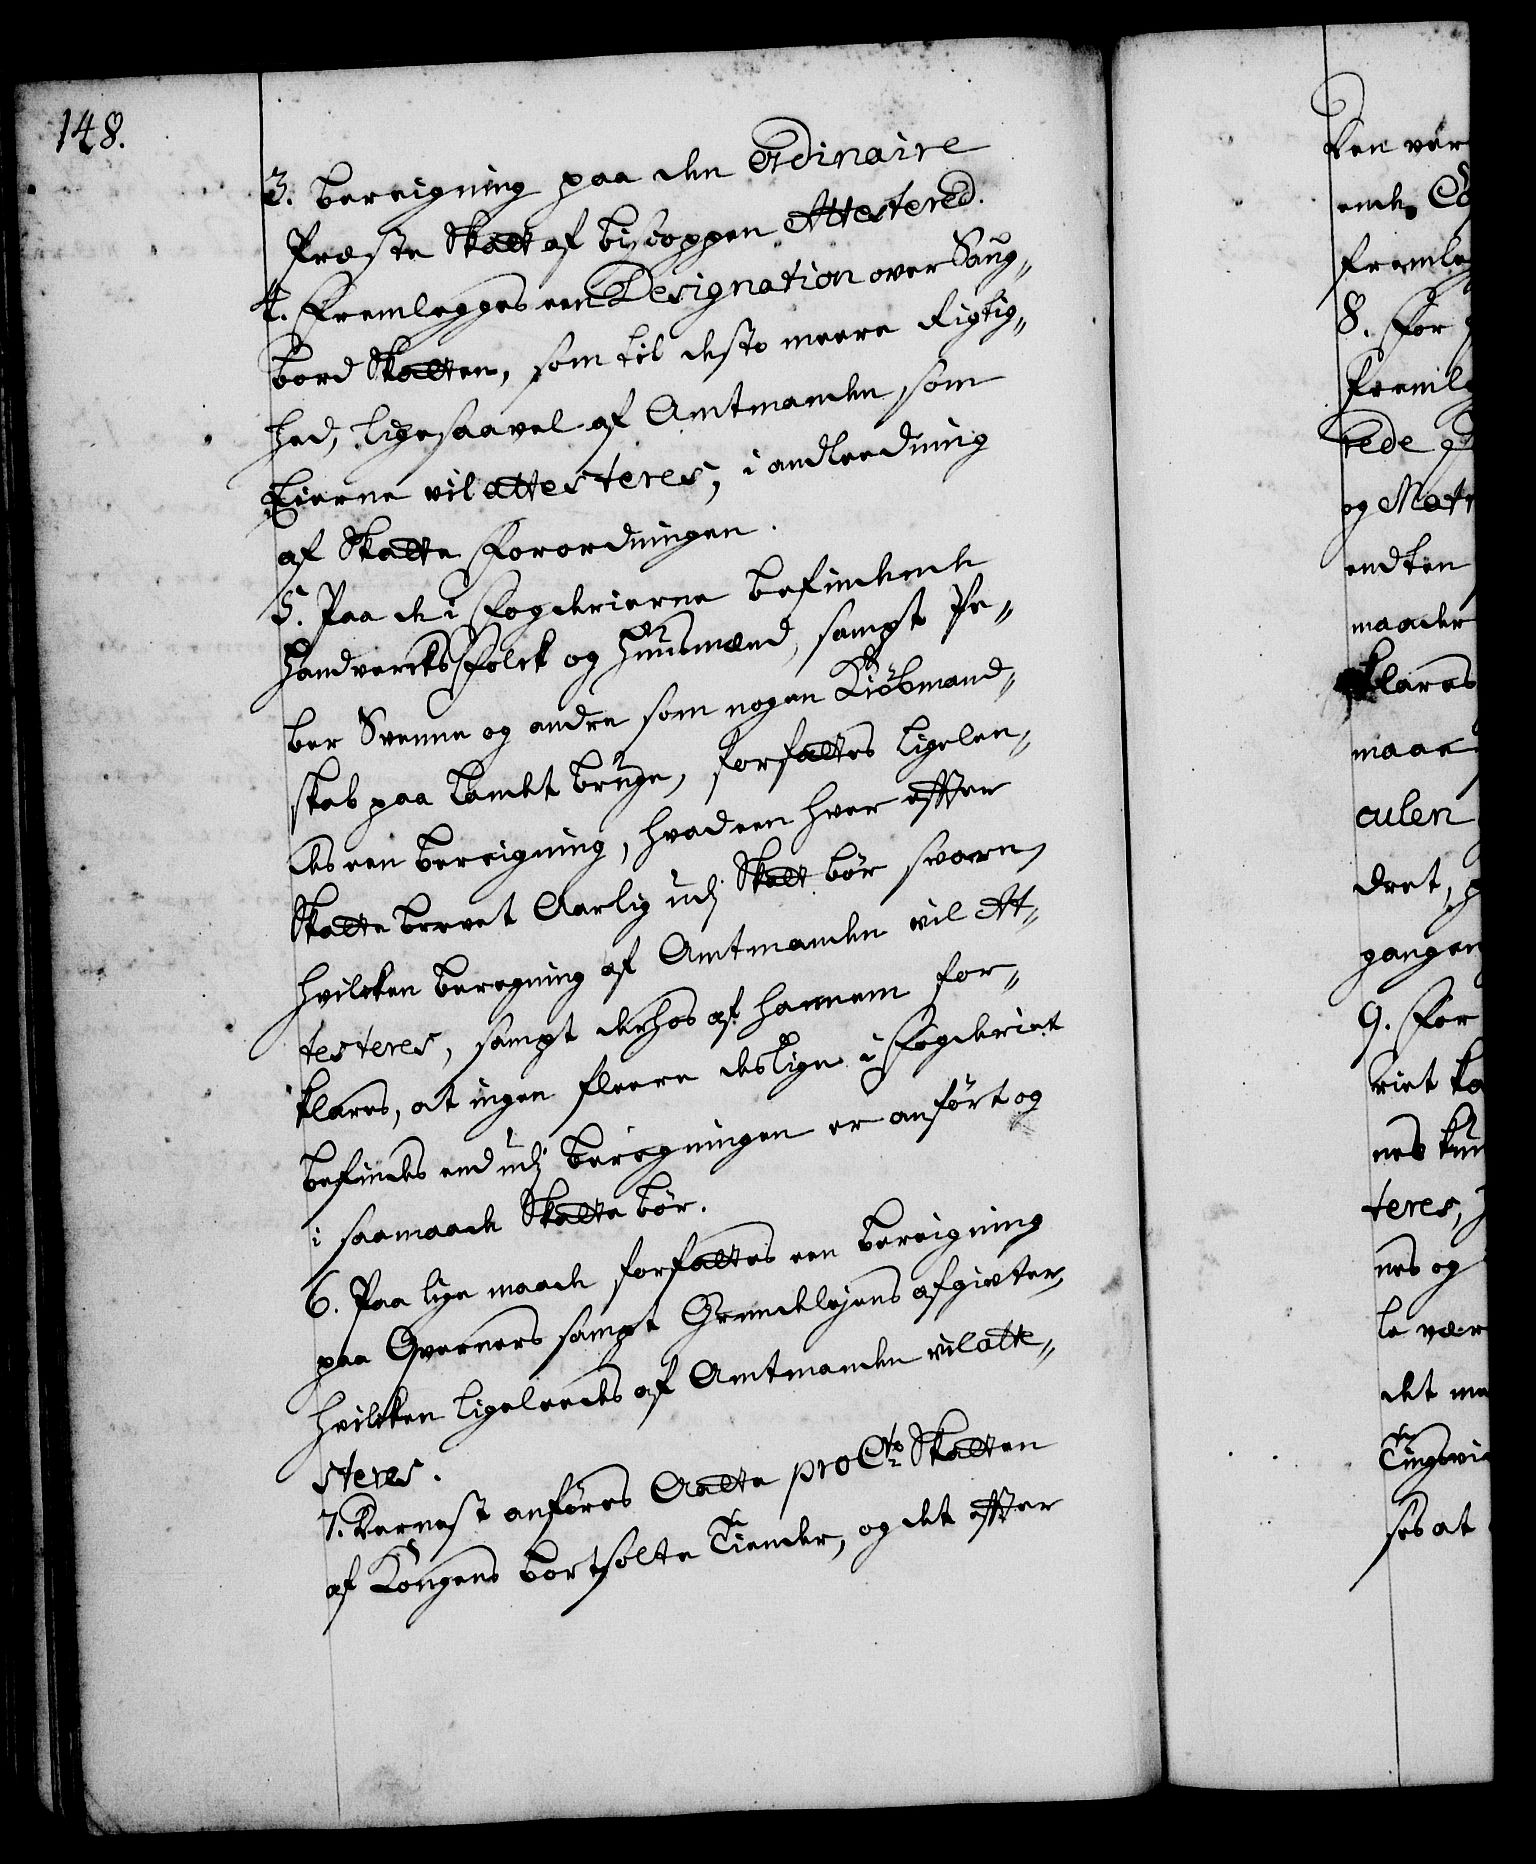 148.
3. bereigning paa den Ordinaire
Præste Skatt af bispoppen Attestered.
4. Fremlegges een Designation over Saug„
bord Skatten, som til desto meere Rigtig„
hed, ligesaavel af Amtmanden som
Eierne vil attesteres, i andleedning
af Skatte Forordningen.
5. Paa de i Fogderierne befindende
Handvercksfolck og Huusmænd, sampt Pe„
ber Svenne og andre som nogen Kiöbmand„
skab paa Landet bruge, forfattes ligelee„
des een bereigning, hvad een hver effter
Skatte brevet Aarlig udj Skatt bör svare,
hvilcken beregning af Amtmanden vil At„
testeres, sampt derhos af hannem for„
klares, at ingen fleere deslige i Fogderiet
befindes end udj beregningen er anfört og
i saamaade Skatte bör.
6. Paa lige maade forfattes een bereigning
paa Qverners sampt Grundeleyens afgivter,
hvilcken ligeleedes af Amtmanden vil atte„
steres.
7. Dernest anföres Aatte pro Cto Skatten
af Kongens bortsolte Tiender, og det effter
Den vær
ende, Co
fremle
8. For
Fremle
rede
og Matr
endten
maader
klares
maae
culen
dret,
gangen
9. For
riet ka
nes kun
teres,
nes og
le vær
det ma
Tingsvi
ses at